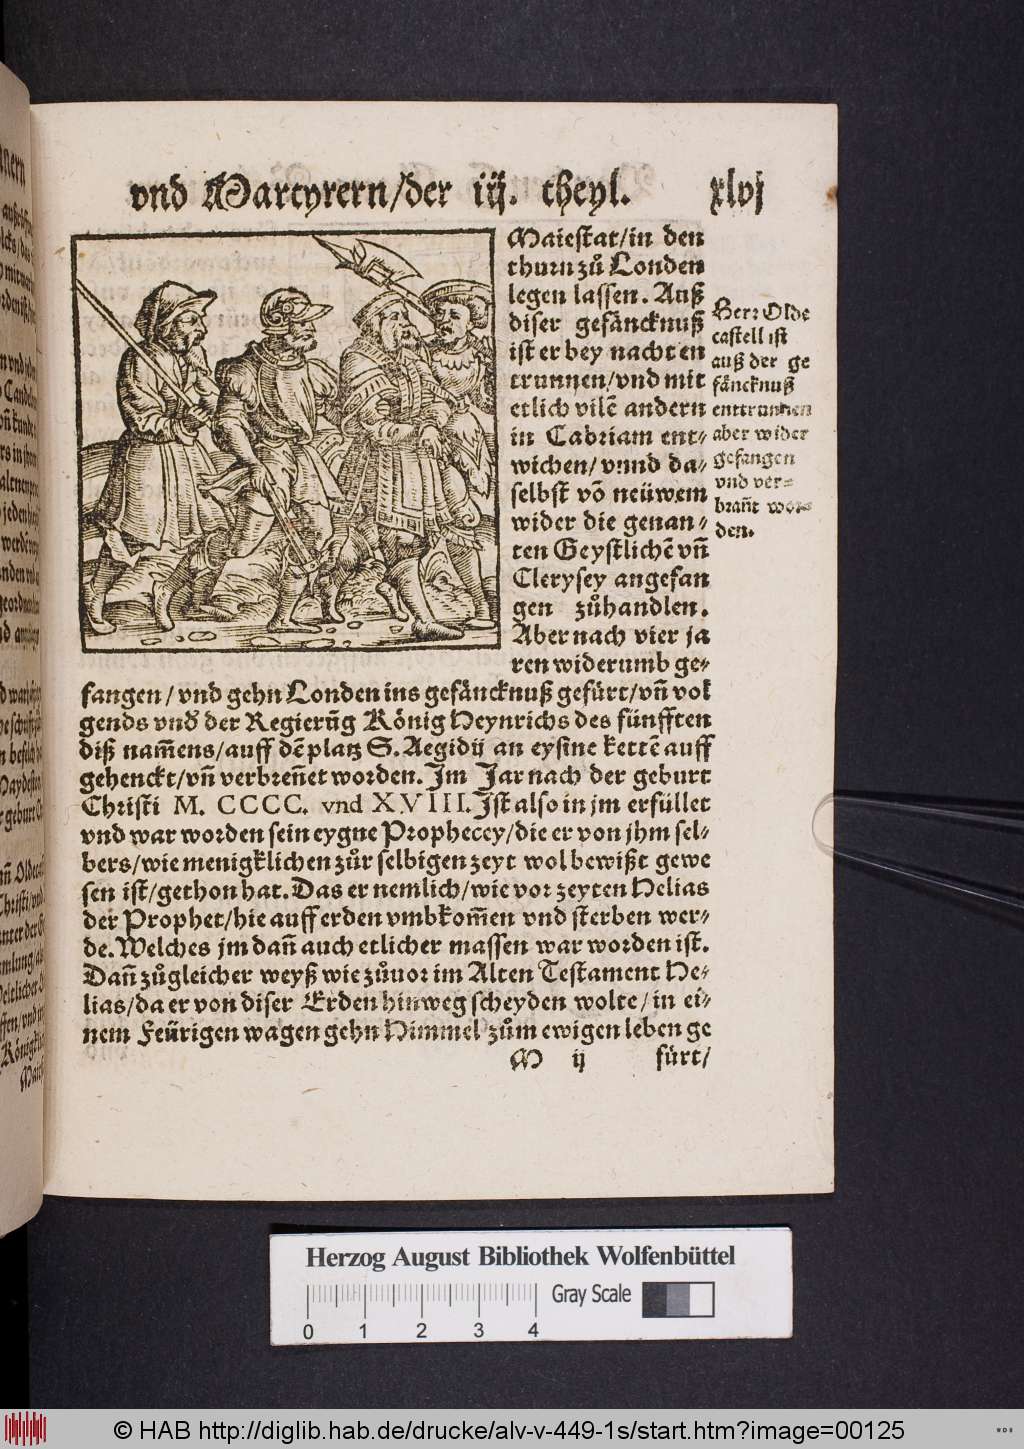 vnd Martyrern/der iij. theyl. xlvj
Maiestat/in den
thurn zů Londen
legen lassen. Auß
diser gefäncknuß
ist er bey nacht en
trunnen/vnd mit
etlich vilẽ andern
in Cabriam ent-
wichen/vnnd da-
selbst võ neüwem
wider die genan-
ten Geystlichẽ vñ
Clerysey angefan
gen zůhandlen.
Aber nach vier ja
ren widerumb ge-
fangen/vnd gehn Londen ins gefäncknuß gefürt/vñ vol
gends vnd der Regierũg König Heynrichs des fünfften
diß nam̃ens/auff dẽ platz S. Aegidij an eysine kettẽ auff
gehenckt/vñ verbreñet worden. Im Jar nach der geburt
Christi M. CCCC. vnd XVIII. Ist also in jm erfüllet
vnd war worden sein eygne Prophecey/die er von jhm sel-
bers/wie menigklichen zůr selbigen zeyt wol bewißt gewe
sen ist/gethon hat. Das er nemlich/wie vor zeyten Helias
der Prophet/hie auff erden vmbkom̃en vnd sterben wer-
de. Welches jm dañ auch etlicher massen war worden ist.
Dañ zůgleicher weyß wie zůuor im Alten Testament He-
lias/da er von diser Erden hinweg scheyden wolte/in ei-
nem Feürigen wagen gehn Himmel zům ewigen leben ge
M ij fürt/
Herr Olde
castell ist
auß der ge
fäncknuß
enttrunnen
aber wider
gefangen
vnd ver-
brañt wor
den.
Herzog August Bibliothek Wolfenbüttel
Gray Scale
0 1 2 3 4
© HAB http://diglib.hab.de/drucke/alv-v-449-1s/start.htm?image=00125